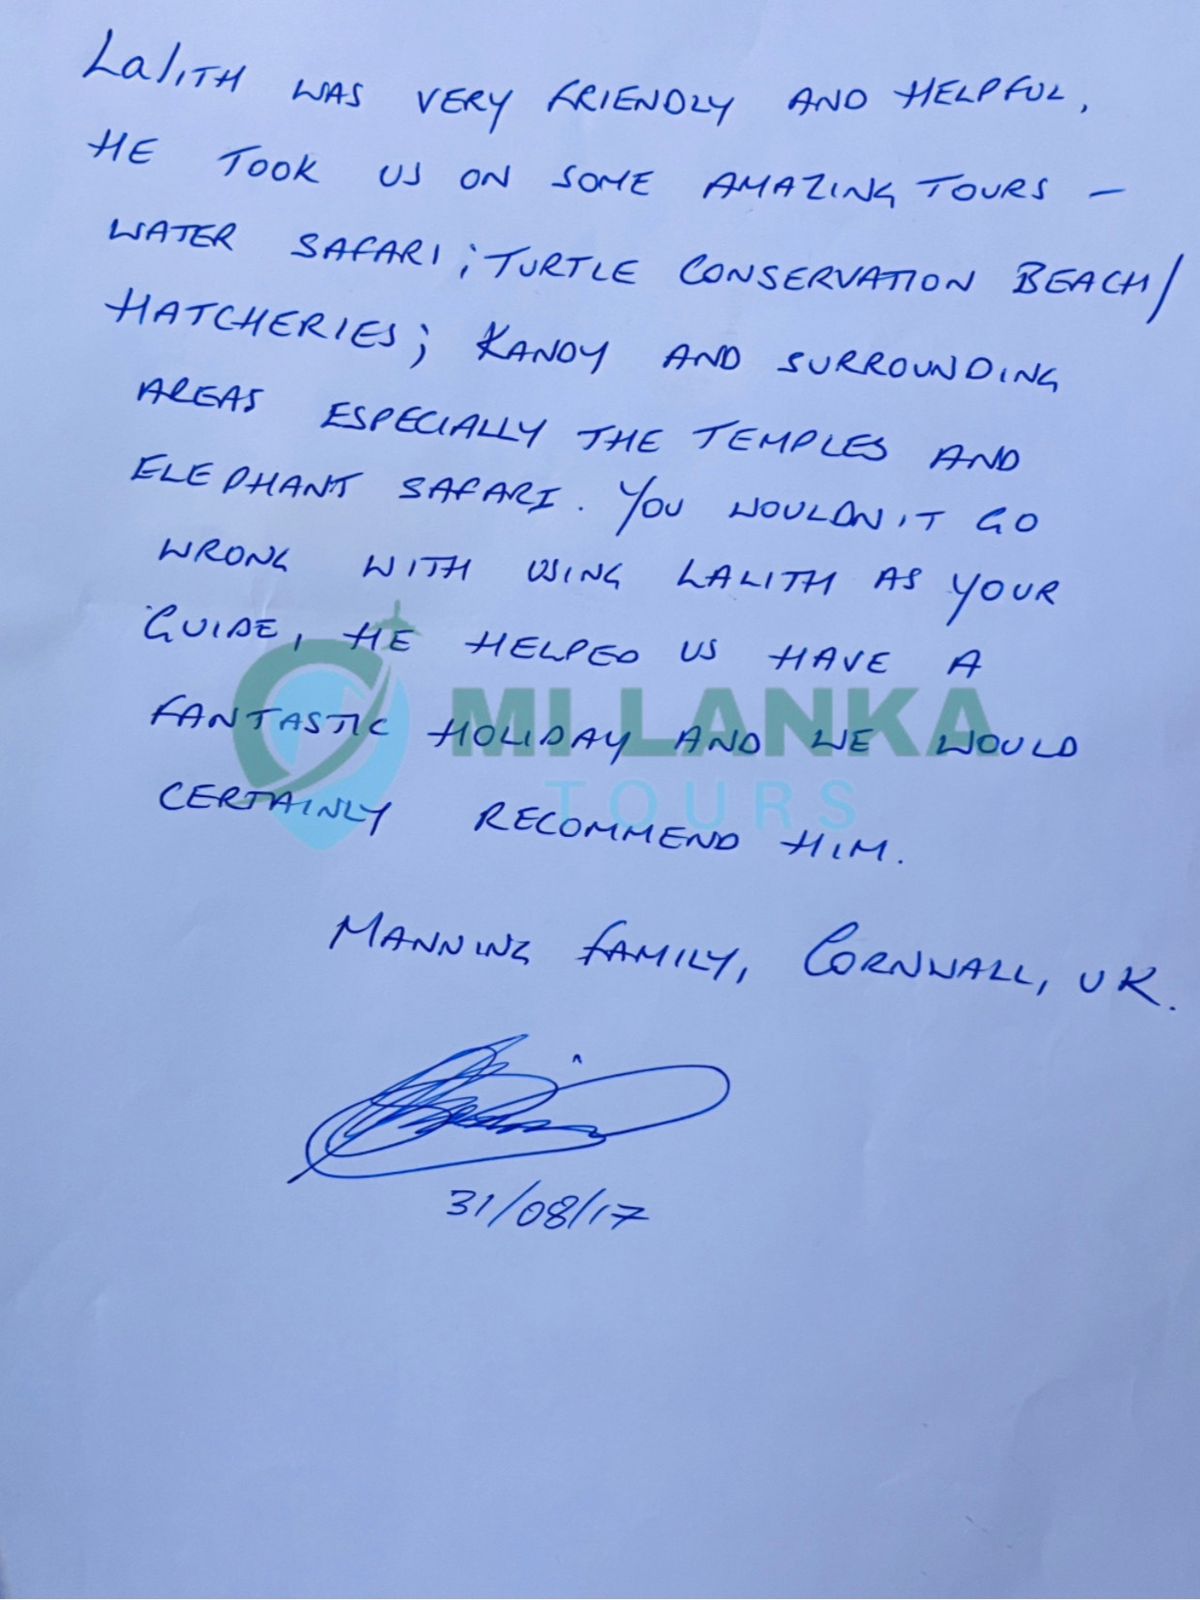 LALITH WAS VERY FRIENDLY AND HELPFUL,
HE TOOK US ON SOME AMAZING TOURS –
WATER SAFARI; TURTLE CONSERVATION BEACH/
HATCHERIES; KANDY AND SURROUNDING
AREAS ESPECIALLY THE TEMPLES AND
ELEPHANT SAFARI. YOU WOULDN'T GO
WRONG WITH USING LALITH AS YOUR
GUIDE, HE HELPED US HAVE A
FANTASTIC HOLIDAY AND WE WOULD
CERTAINLY RECOMMEND HIM.
MI LANKA
TOURS
MANNING FAMILY, CORNWALL, UK.
31/08/17